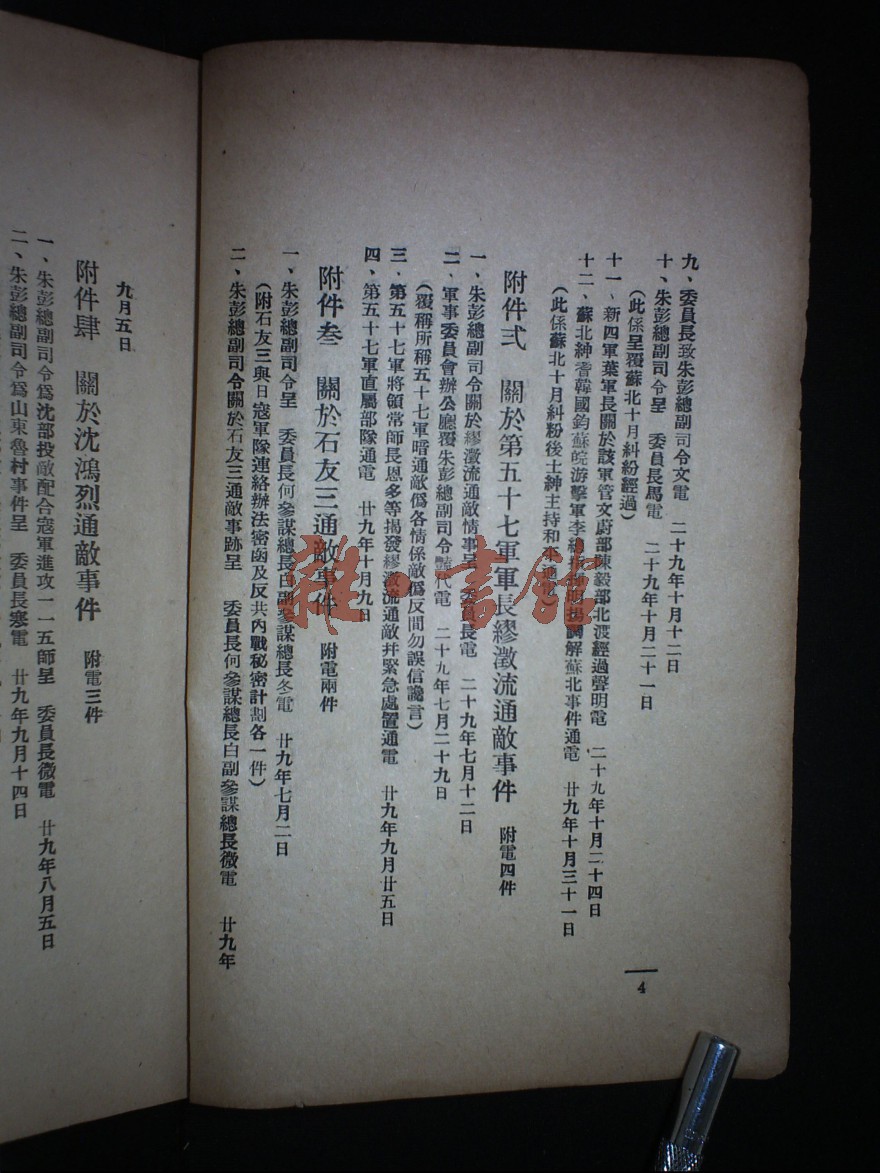 九、委員長致朱彭總副司令文電 二十九年十月十二日
十、朱彭總副司令呈 委員長馬電 二十九年十月二十一日
(此係呈覆蘇北十月糾紛經過)
十一、新四軍葉軍長關於該軍管文蔚部陳毅部北渡經過聲明電 二十九年十月二十四日
十二、蘇北紳耆韓國鈞蘇皖游擊軍李總 調解蘇北事件通電 廿九年十月三十一日
(此係蘇北十月糾粉後士紳主持和平通電)
附件弍 關於第五十七軍軍長繆澂流通敵事件 附電四件
一、朱彭總副司令關於繆澂流通敵情事呈 委員長電 二十九年七月十二日
二、軍事委員會辦公廳覆朱彭總副司令 代電 二十九年七月二十九日
(覆稱所稱五十七軍暗通敵僞各情係敵僞反間勿誤信讒言)
三、第五十七軍將領常師長恩多等揭發繆澂流通敵并緊急處置通電 廿九年九月廿五日
四、第五十七軍直屬部隊通電 廿九年十月九日
附件叁 關於石友三通敵事件 附電兩件
一、朱彭總副司令呈 委員長何參謀總長白副參謀總長冬電 廿九年七月二日
(附石友三與日寇軍隊連絡辦法密函及反共內戰秘密計劃各一件)
二、朱彭總副司令關於石友三通敵事跡呈 委員長何參謀總長白副參謀總長微電 廿九年
4
九月五日
附件肆 關於沈鴻烈通敵事件 附電三件
一、朱彭總副司令爲沈部投敵配合寇軍進攻一一五師呈 委員長微電 廿九年八月五日
二、朱彭總副司令爲山東魯村事件呈 委員長寒電 廿九年九月十四日